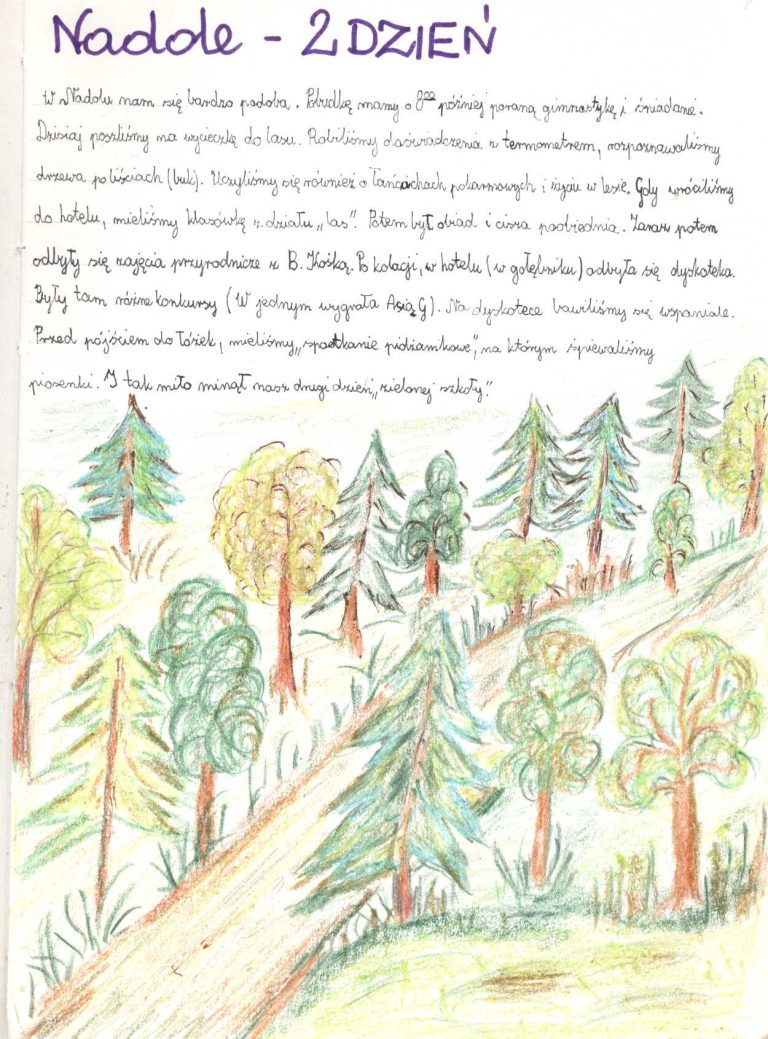 Nadole - 2 DZIEŃ
W Nadolu nam się bardzo podoba. Pobudkę mamy o 8⁰⁰ później poraną gimnastykę i śniadanie.
Dzisiaj poszliśmy na wycieczkę do lasu. Robiliśmy doświadczenia z termometrem, rozpoznawaliśmy
drzewa po liściach (buk). Uczyliśmy się również o łańcuchach pokarmowych i życiu w lesie. Gdy wróciliśmy
do hotelu, mieliśmy klasówkę z działu „las". Potem był obiad i cisza poobiednia. Zaraz potem
odbyły się zajęcia przyrodnicze z B. Kośką. Po kolacji, w hotelu (w gołębniku) odbyła się dyskoteka.
Były tam różne konkursy (W jednym wygrała Asia G). Na dyskotece bawiliśmy się wspaniale.
Przed pójściem do łóżek, mieliśmy „spotkanie pidżamkowe", na którym śpiewaliśmy
piosenki. I tak miło minął nasz drugi dzień „zielonej szkoły".